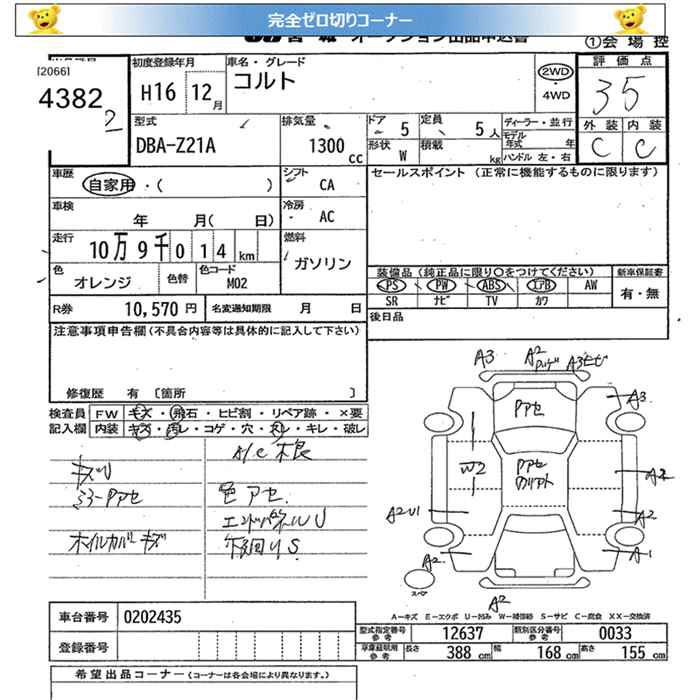 完全ゼロ切りコーナー
オークション出品申込書
①会場控
[2066]
4382
2
初度登録年月
H16 12月
車名・グレード
コルト
2WD
・
4WD
評価点
35
外装 内装
C C
型式
DBA-Z21A
排気量
1300cc
ドア 5
定員 5人
形状 W
積載 kg
ディーラー・並行
モデル年式 年
ハンドル 左・右
車歴
自家用・( )
シフト CA
セールスポイント (正常に機能するものに限ります)
車検
年 月( 日)
冷房 AC
走行
10万9千014km
燃料
ガソリン
色
オレンジ
色替
色コード
M02
装備品(純正品に限り〇をつけてください)
新車保証書
PS PW ABS エアB AW
SR ナビ TV カワ
有・無
R券 10,570円
名変通知期限 月 日
後日品
注意事項申告欄(不具合内容等は具体的に記入して下さい)
修復歴 有 〔箇所 〕
検査員記入欄
FW キズ・飛石・ヒビ割・リペア跡・×要
内装 キズ・汚レ・コゲ・穴・スレ・キレ・破レ
A/C 不良
キズU
ミラーPアセ
色アセ.
ホイルカバーキズ
A3
A2
A3
A3
Pアセ
W2
Pアセ
A2U1
A2
A2
A2
A1
スペア
A2
A-キズ E-エクボ U-凹み W-補修跡 S-サビ C-腐食 XX-交換済
車台番号 0202435
登録番号
型式指定番号 参考 12637
類別区分番号 参考 0033
車庫証明用 参考 長さ 388cm 幅 168cm 高さ 155cm
希望出品コーナー(コーナーは各会場により異なります。)